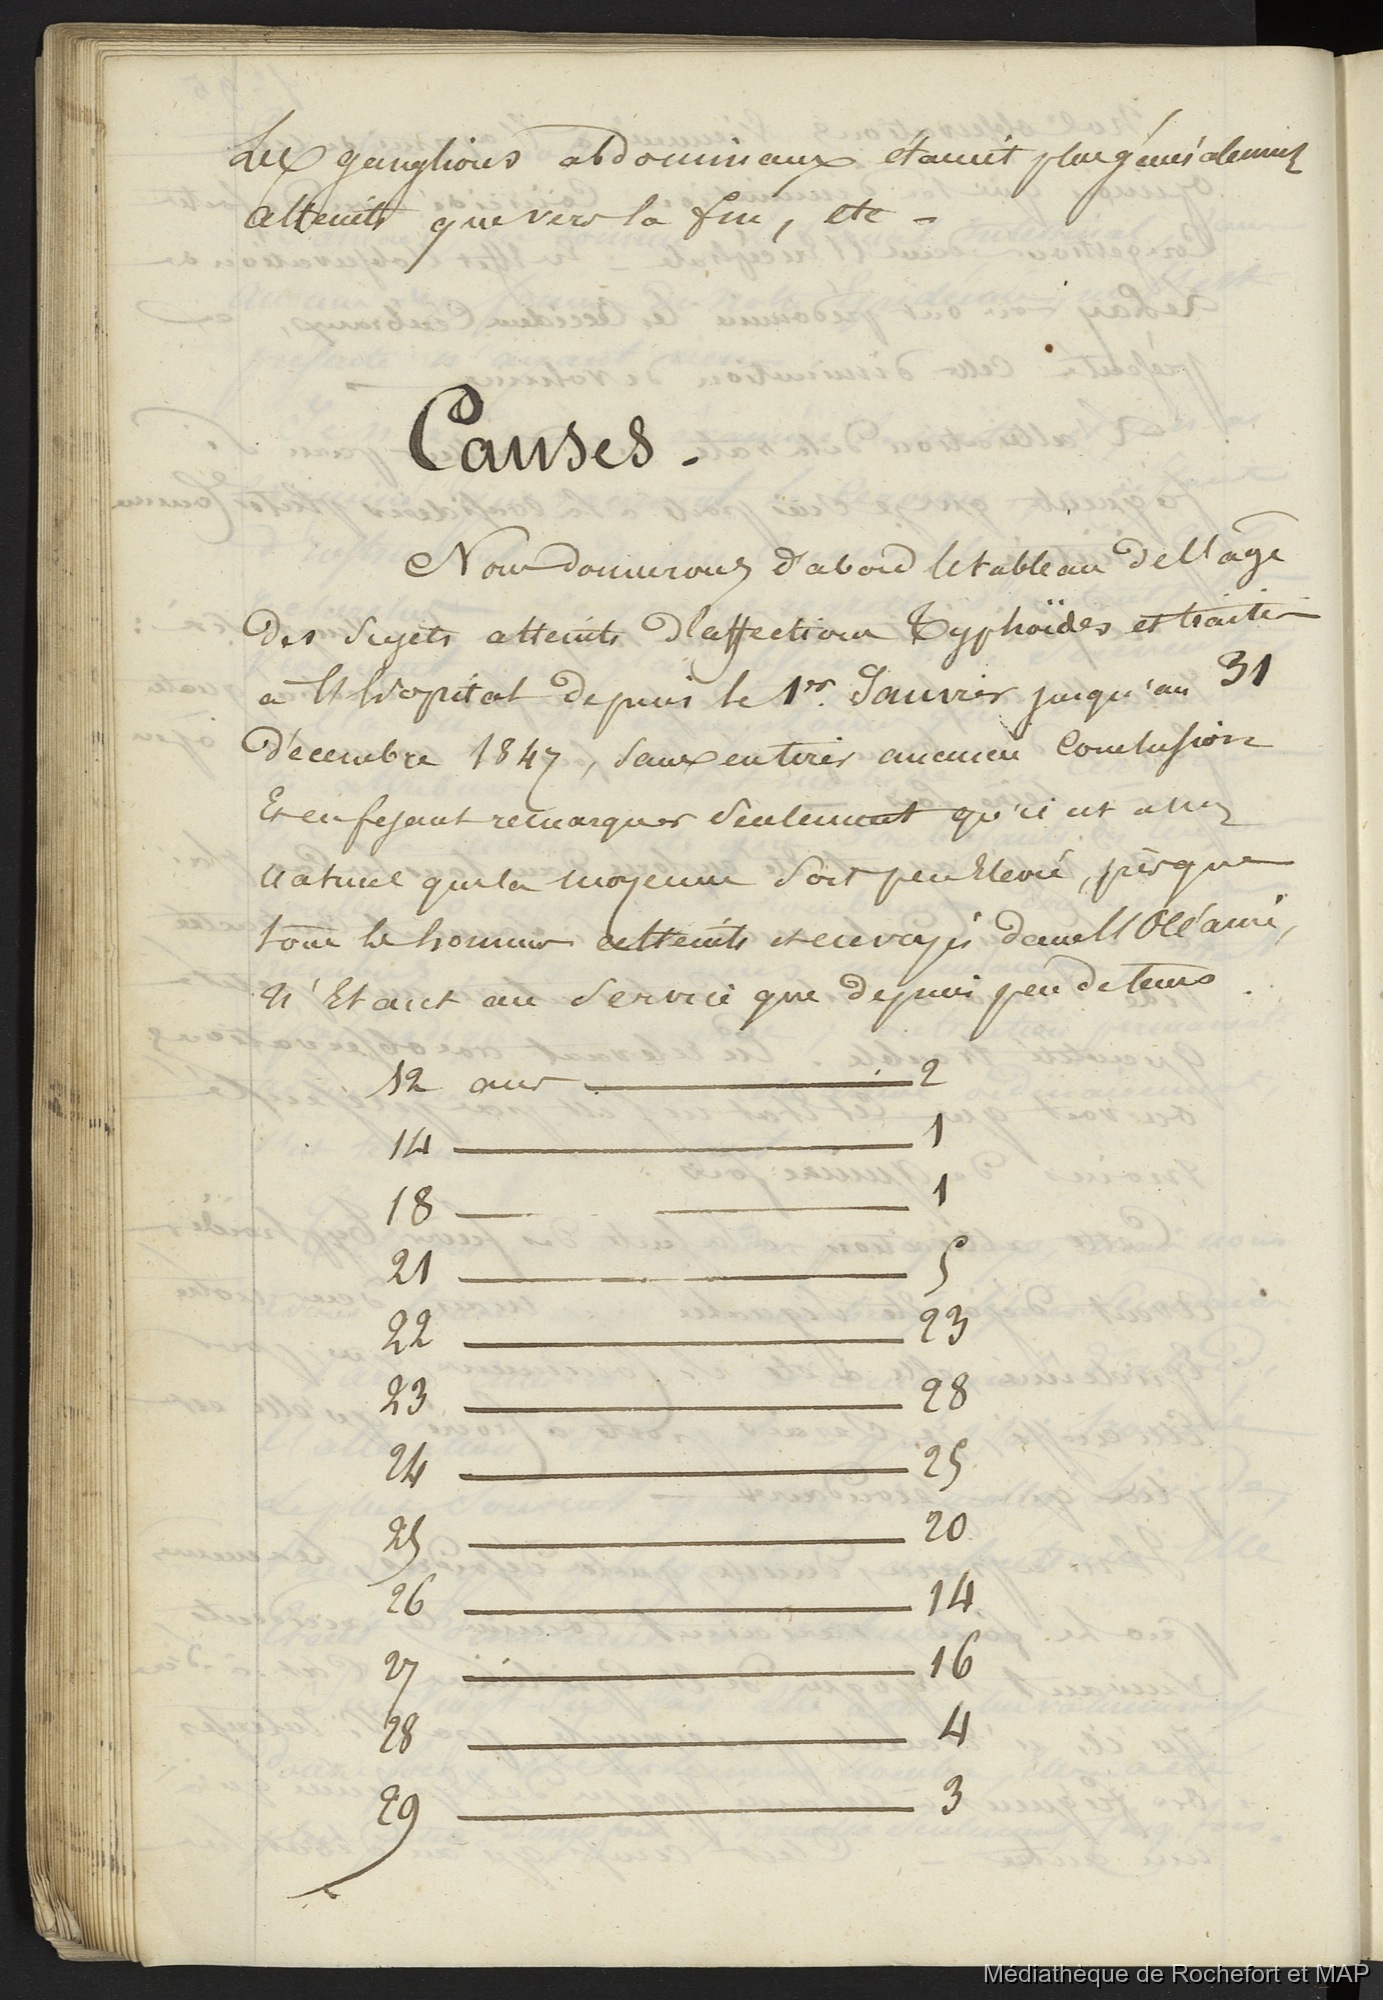 Les ganglions abdominaux étaient plus généralement
atteints que vers la fin, etc -
Causes.
Nous donnerons d'abord le tableau de l'âge
des sujets atteints d'affections Typhoïdes et traités
à l'hôpital depuis le 1er. Janvier jusqu'au 31
Décembre 1847, sans en tirer aucune conclusion
Et en fesant remarquer seulement qu'il est assez
naturel que la moyenne soit peu Elevée, presque
tous les hommes atteints et envoyés dans l'
n'Etant au service que depuis peu de tems.
12 ans — 2
14 — 1
18 — 1
21 — 5
22 — 23
23 — 28
24 — 25
25 — 20
26 — 14
27 — 16
28 — 4
29 — 3
Médiathèque de Rochefort et MAP